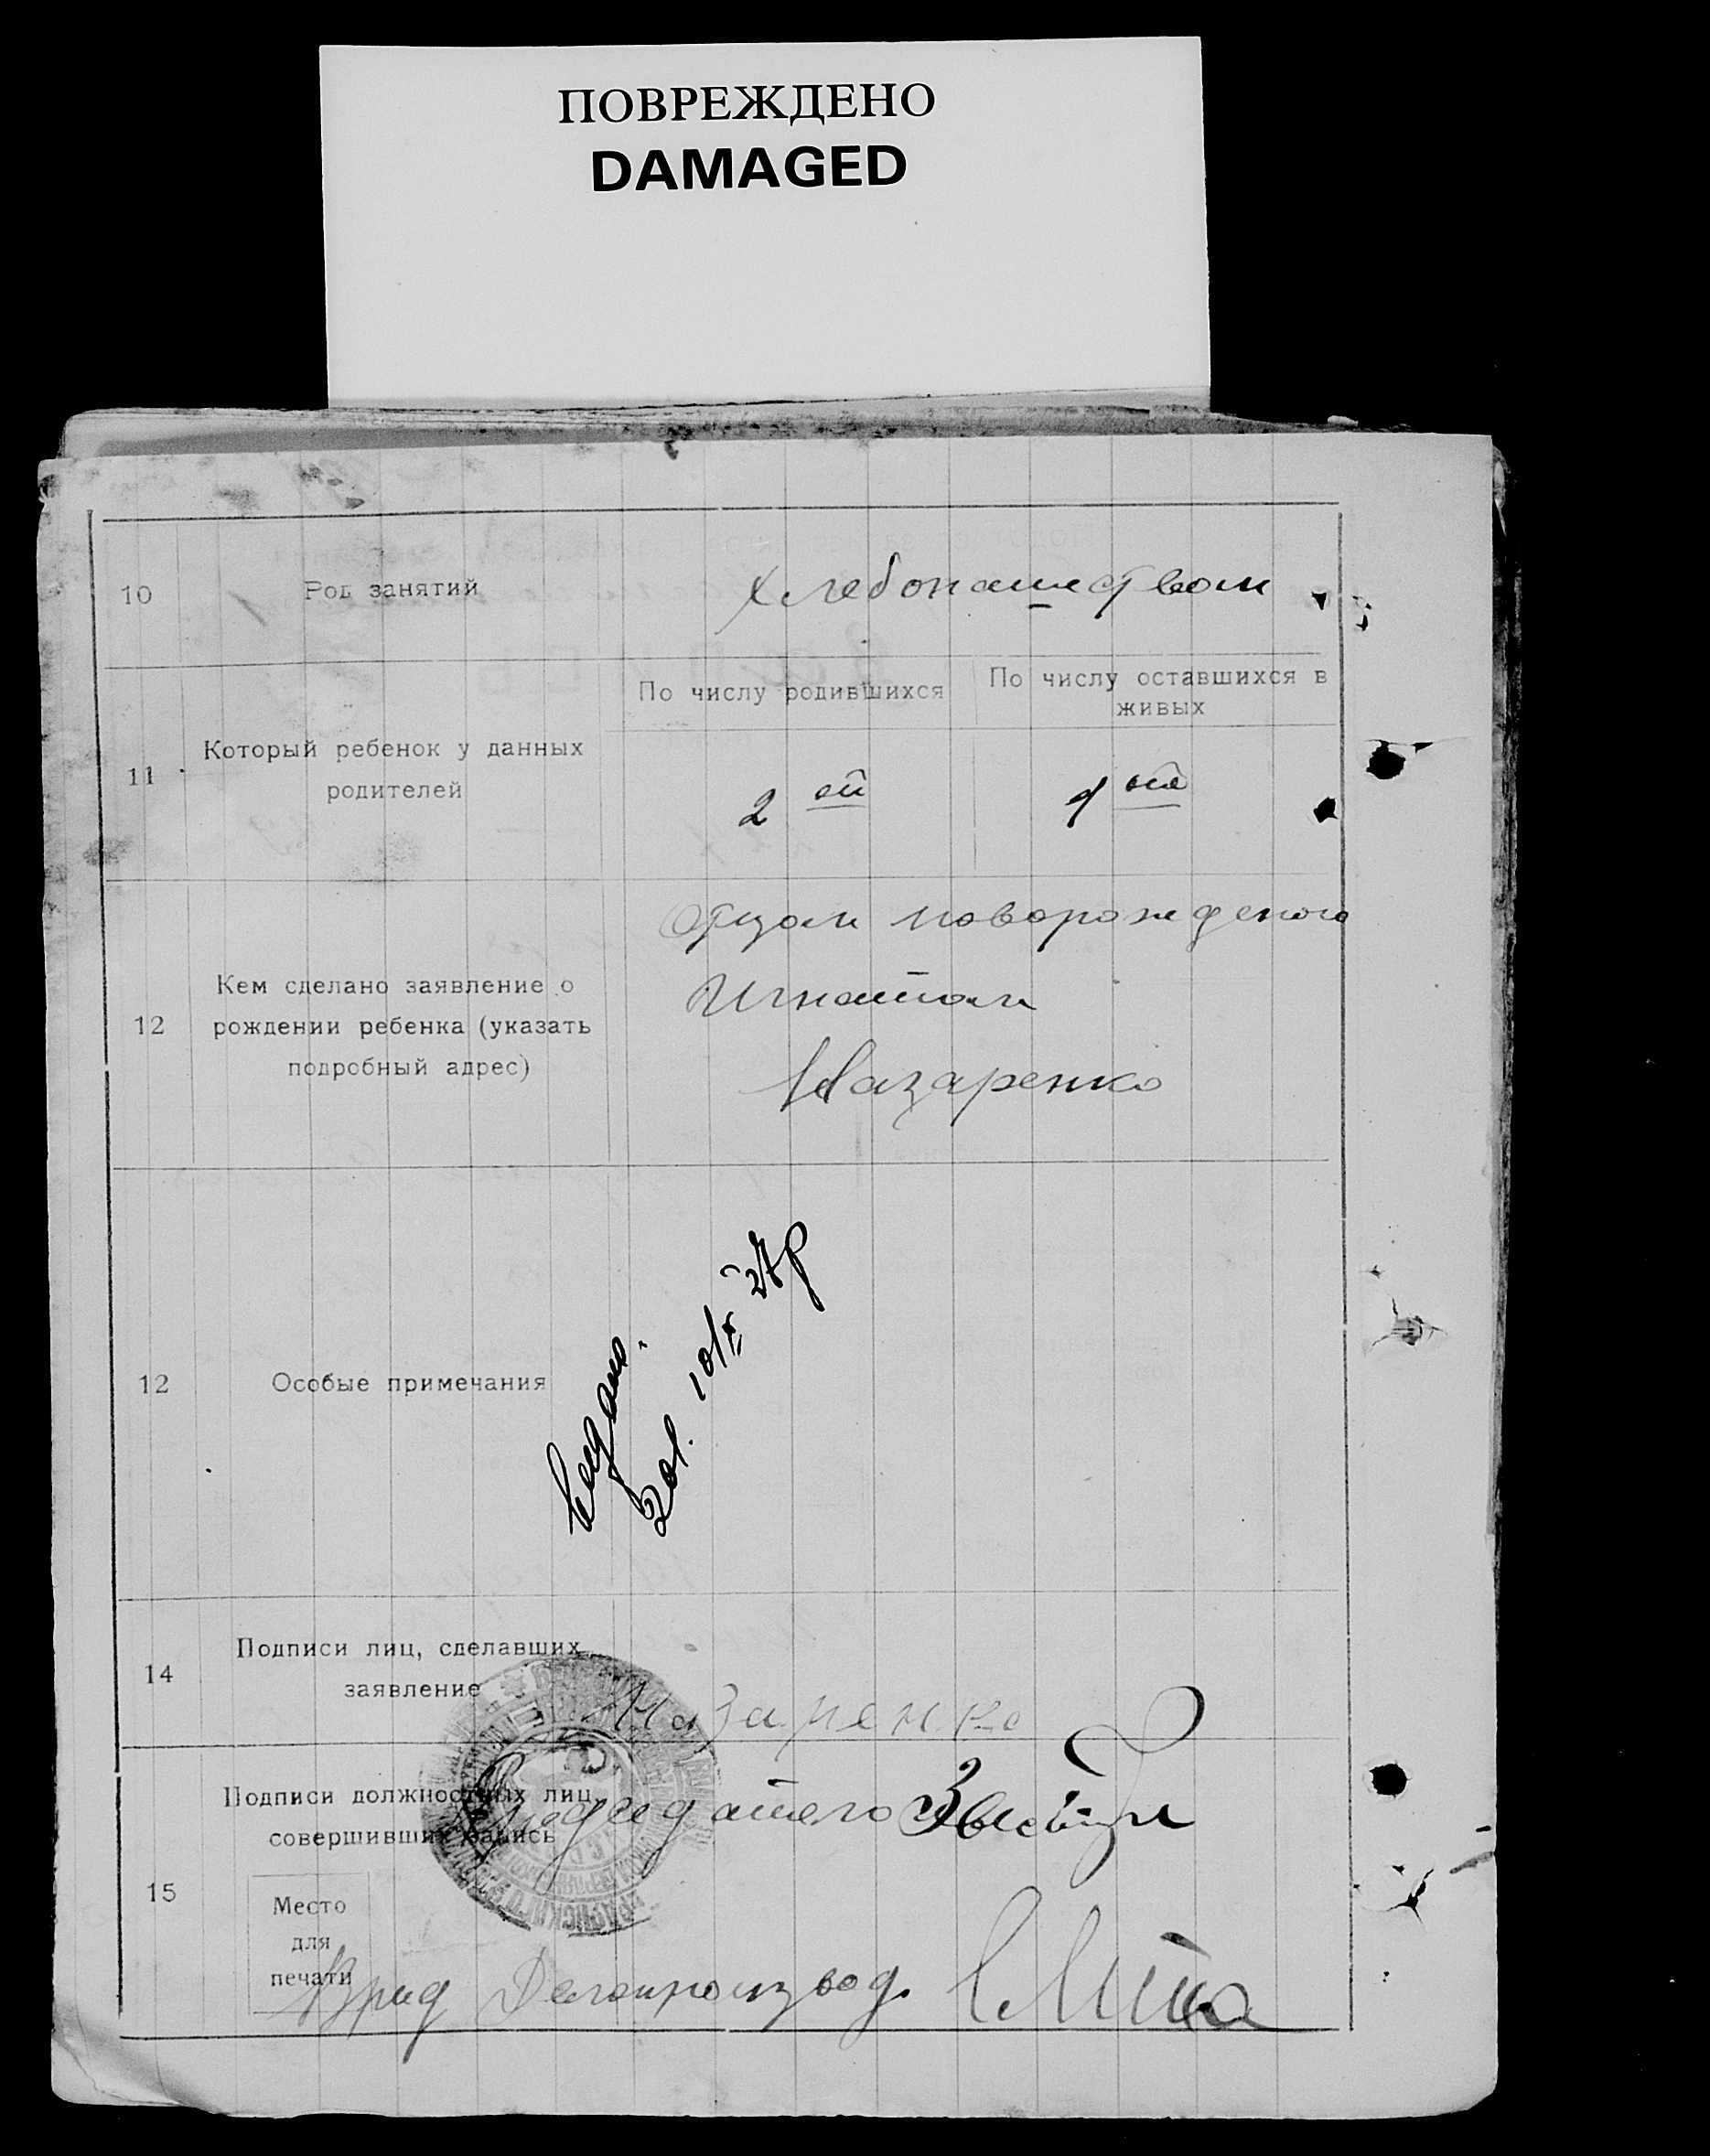 ПОВРЕЖДЕНО
DAMAGED
10 Род занятий хлебопашеством
По числу родившихся По числу оставшихся в живых
11 Который ребенок у данных родителей 2 ой 1 ый
12 Кем сделано заявление о рождении ребенка (указать подробный адрес)
Отцом новорожденого
Игнатом
Назаренко
12 Особые примечания
14 Подписи лиц, сделавших заявление Назаренко
15 Подписи должностных лиц, совершивших запись
Место для печати
Врид Делопроизвод.